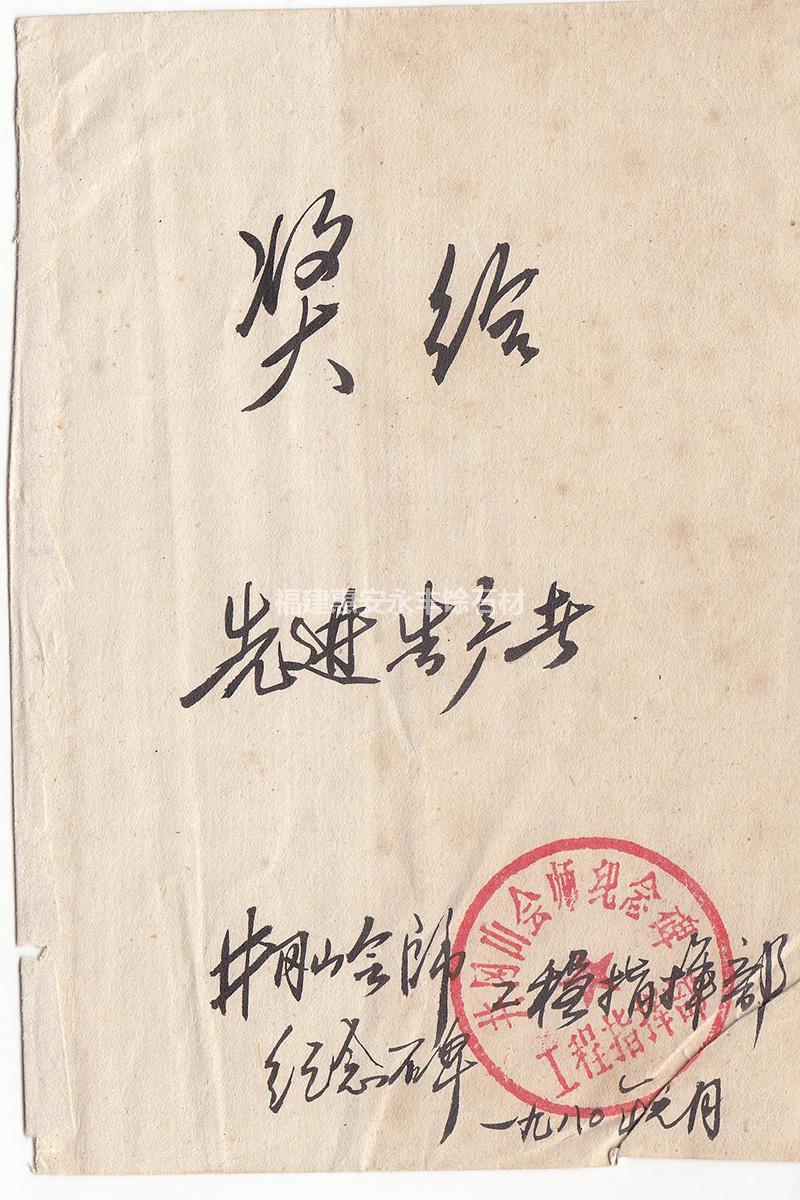 奖给
福建惠安永丰馀石材
先进生产者
井冈山会師
纪念碑
工程指挥部
一九八〇年元月
井冈山会师纪念碑
工程指挥部